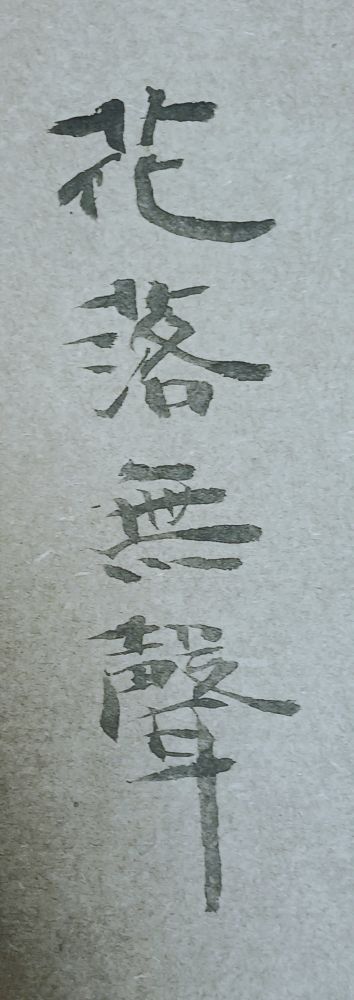 花落無聲